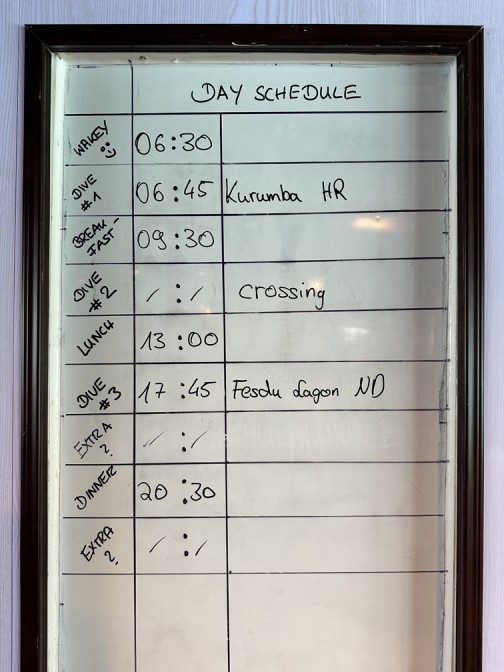 DAY SCHEDULE
WAKEY 06:30
DIVE #1 06:45 Kurumba HR
BREAK-FAST 09:30
DIVE #2 / : / crossing
LUNCH 13:00
DIVE #3 17:45 Fesdu Lagon ND
EXTRA ? / : /
DINNER 20:30
EXTRA ? / : /